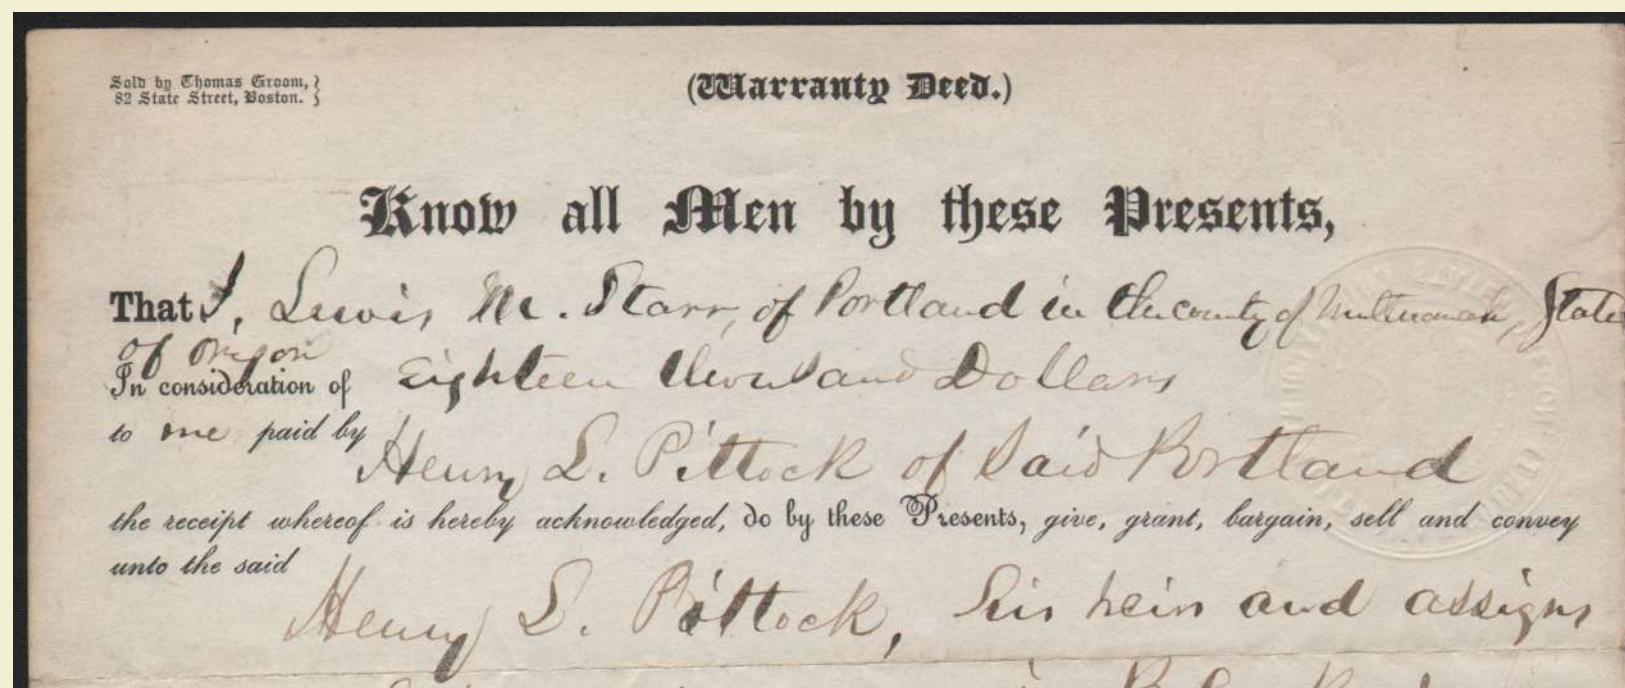 Sold by Thomas Groom,
82 State Street, Boston.
(Warranty Deed.)
Know all Men by these Presents,
That I, Lewis M. Starr, of Portland in the county of Multnomah, State
of Oregon
In consideration of Eighteen thousand Dollars
to me paid by
Henry L. Pittock of Said Portland
the receipt whereof is hereby acknowledged, do by these Presents, give, grant, bargain, sell and convey
unto the said
Henry L. Pittock, his heirs and assigns